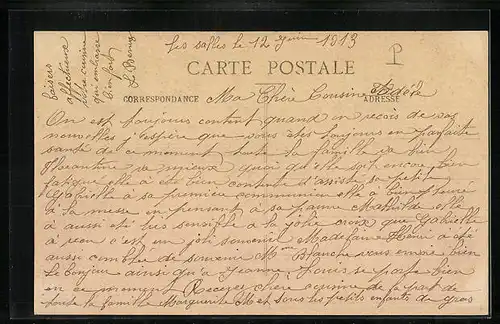 Les salles le 12 Juin 1913
P
CARTE POSTALE
CORRESPONDANCE
ADRESSE
Ma Chère Cousine
On est toujours content quand on reçois de vos
nouvelles j'espère que vous êtes toujours en parfaite
santé de ce moment toute la famille va bien
va mieux quoi qu'elle soit encore bien
fatiguée elle a été bien contente d'assisté sa petite
Gabrielle à sa première communion elle à bien pleuré
à la messe en pensant à sa pauvre Mathilde elle
à aussi été très sensible à la jolie croix que Gabrielle
à reçu c'est un joli souvenir Henri a été
aussi comblée de souvenir Mme Blanche vous envoie bien
le bonjour ainsi qu'a Jeanne Louis se porte bien
en ce moment Recevez chère cousine de la part de
toute la famille Marguerite et tous les petits enfants de gros
baisers
affectueux
votre cousine
qui embrasse
bien fort